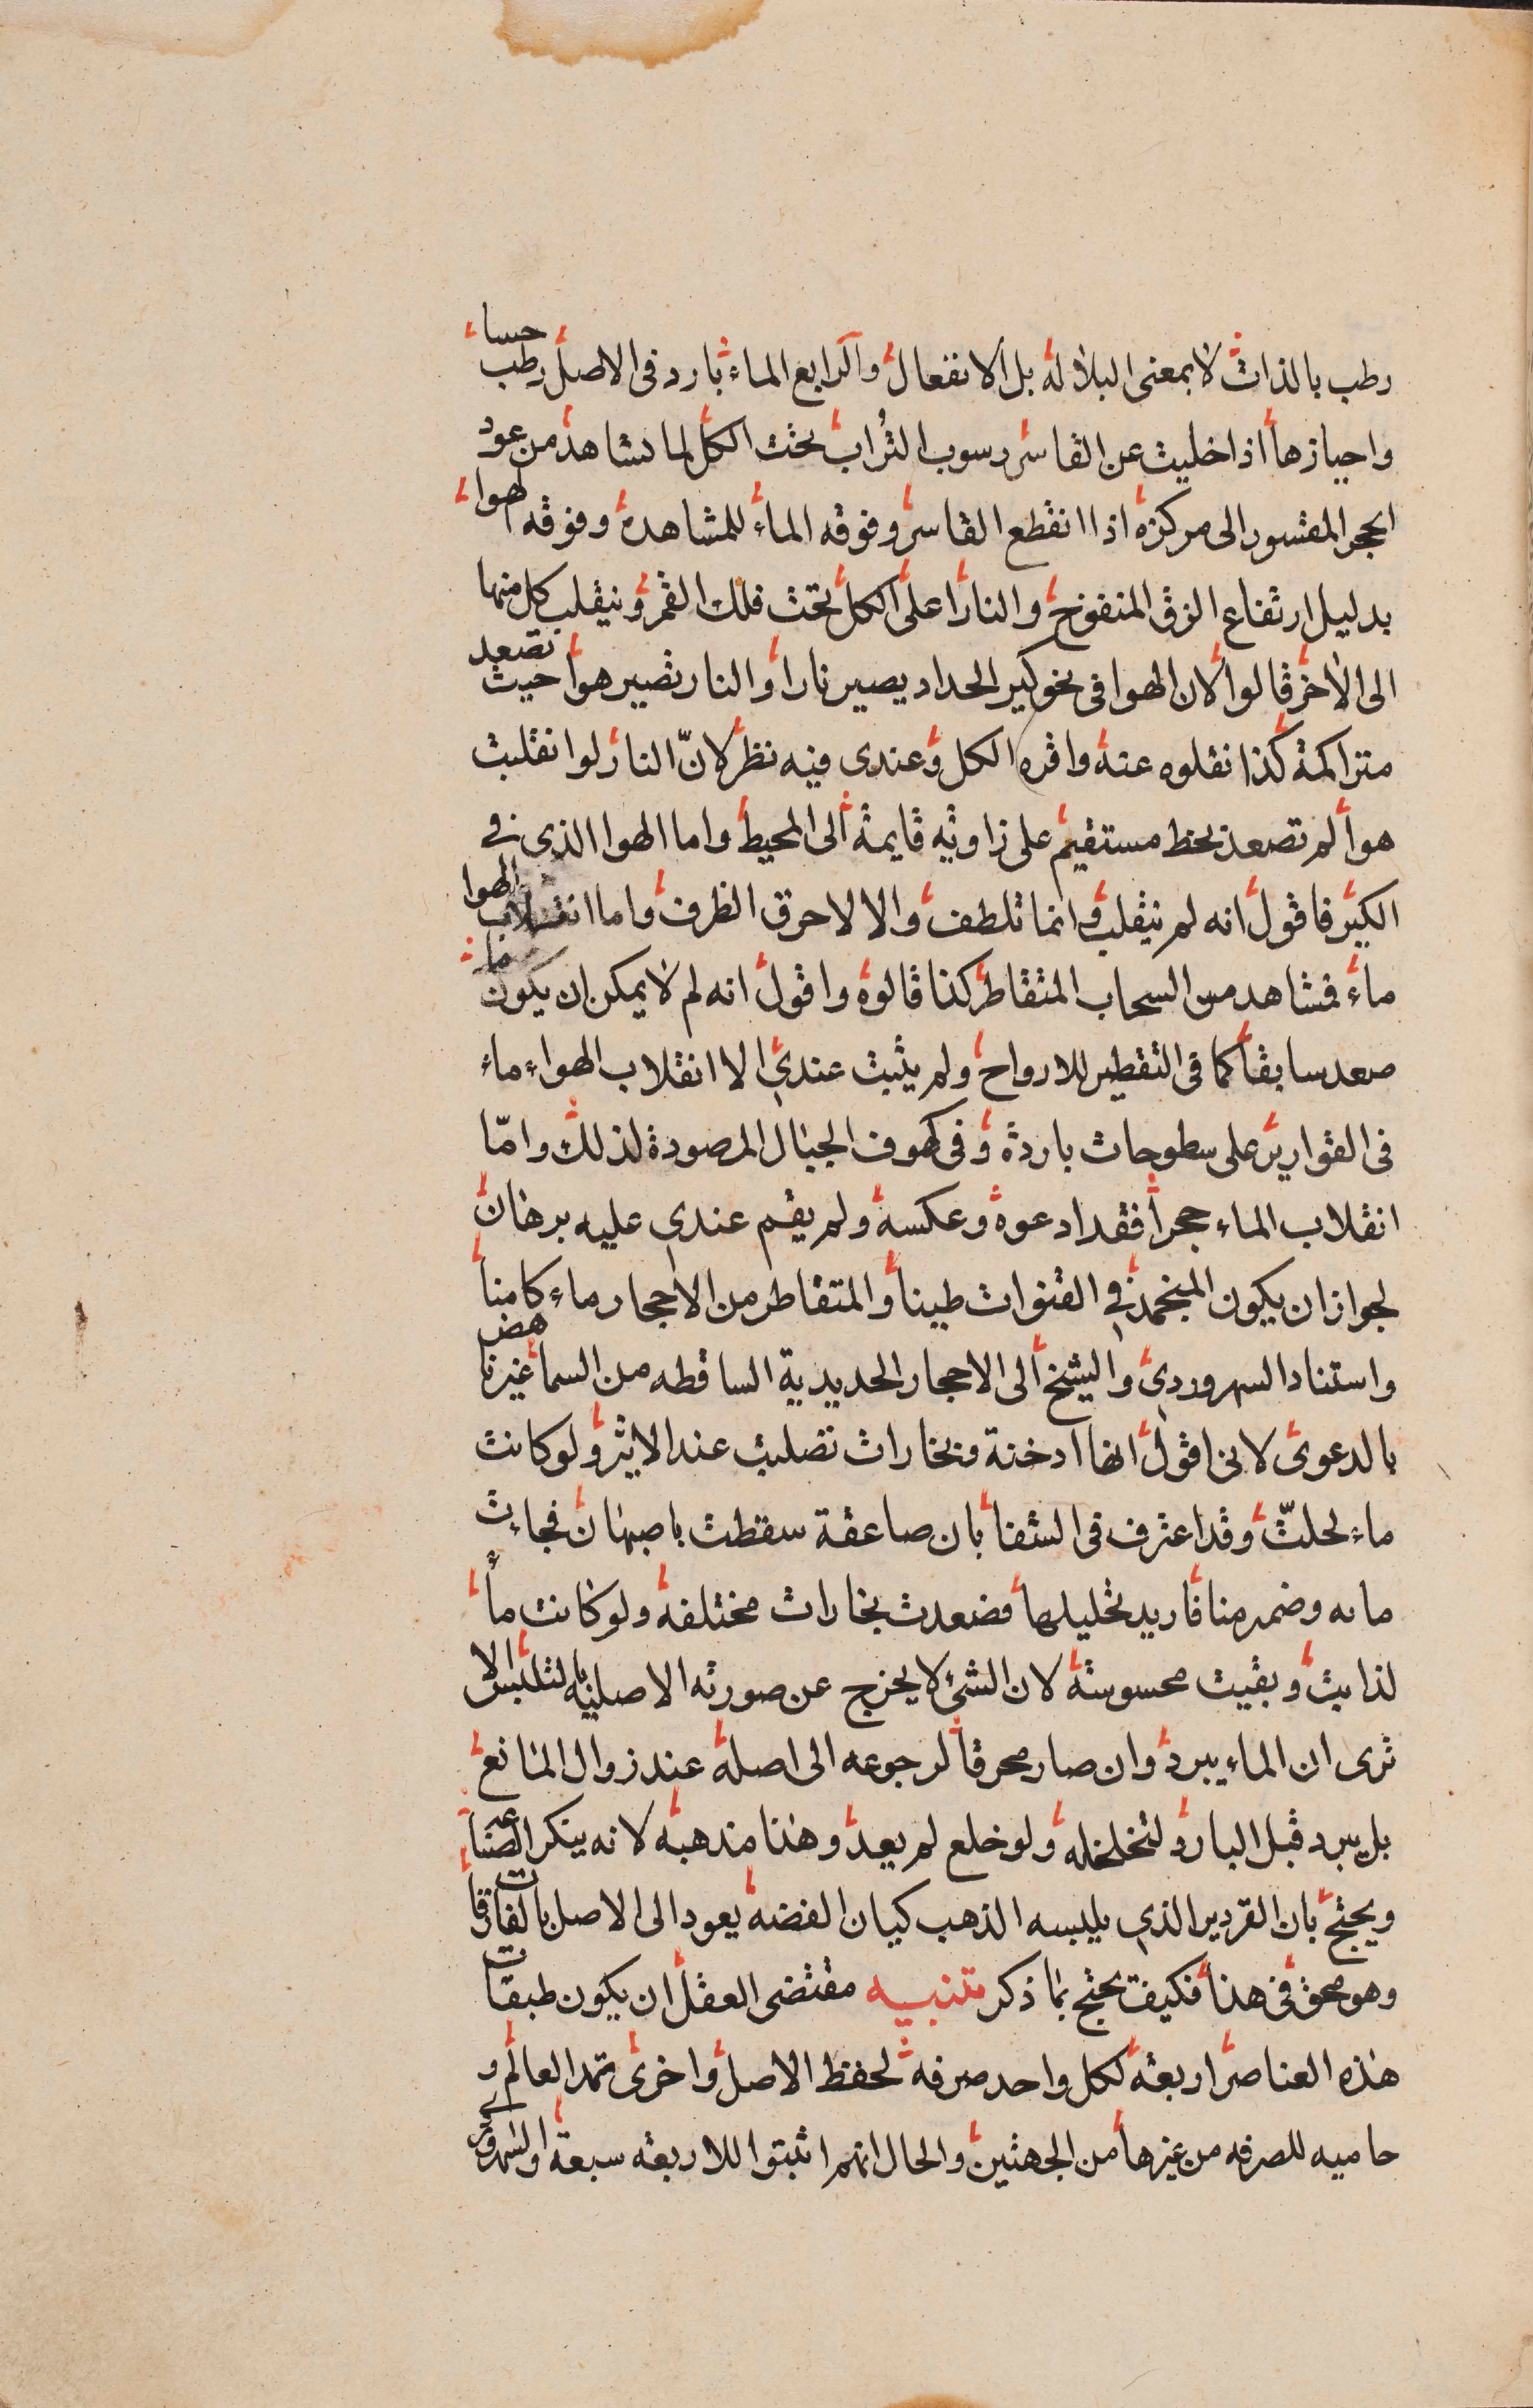 رطب بالذات لا بمعنى البلاله بل الانفعال والرابع الماء بارد فى الاصل رطب حسا
واحيازها اذا خليت عن القاسر رسوب التراب تحت الكل لما نشاهد من عود
الحجر المقسور الى مركزه اذا انقطع القاسر وفوقه الماء للمشاهدة وفوقه الهوا
بدليل ارتفاع الزق المنفوخ والنار اعلى الكل تحت فلك القمر وينقلب كل منها
الى الاخر قالوا لان الهوا فى نحو كير الحداد يصير نارا والنار تصير هوا حيث تصعد
متراكمة كذا نقلوه عنه واقره الكل وعندى فيه نظر لانّ النار لو انقلبت
هوا لم تصعد بخط مستقيم على زاوية قايمة الى المحيط واما الهوا الذى فى
الكير فاقول انه لم ينقلب وانما تلطف والا لاحرق الظرف واما انقلاب الهوا
ماء فمشاهد من السحاب المتقاطر كذا قالوه واقول انه لم لا يمكن ان يكون ما
صعد سابقا كما فى التقطير للارواح ولم يثبت عندى الا انقلاب الهواء ماء
فى القوارير على سطوحات باردة وفى كهوف الجبال المرصودة لذلك وامّا
انقلاب الماء حجرا فقد ادعوه وعكسه ولم يقم عندى عليه برهان
لجواز ان يكون المنجمد فى القنوات طينا والمتقاطر من الاحجار ماء كامنا
واستناد السهروردى والشيخ الى الاحجار الحديدية الساقطه من السما غير ناهض
بالدعوى لانى اقول انها ادخنة وبخارات تصلبت عند الاثير ولو كانت
ماء لحلتّ وقد اعترف فى الشفا بان صاعقة سقطت باصبهان فجاءت
مايه وضمد منا فاريد تحليلها فصعدت بخارات مختلفه ولو كانت مأ
لذابت وبقيت محسوسة لان الشئ لا يخرج عن صورته الاصلية بالتلبس الا
ترى ان الماء يبرد وان صار محرقا لرجوعه الى اصله عند زوال المانع
بل يبرد قبل البارد لتخلخله ولو خلع لم يعد وهذا مذهبه لانه ينكر الصناعة
ويحتج بان القردير الذى يلبسه الذهب كيان الفضه يعود الى الاصل بالفارقات
وهو محق فى هذا فكيف يحتج بما ذكر تنبيه مقتضى العقل ان يكون طبقات
هذه العناصر اربعة لكل واحد صرفه لحفظ الاصل واخرى تمد العالم و
حاميه للصرفه من غيرها من الجهتين والحال انهم اثبتوا للاربعه سبعة والسهرورى